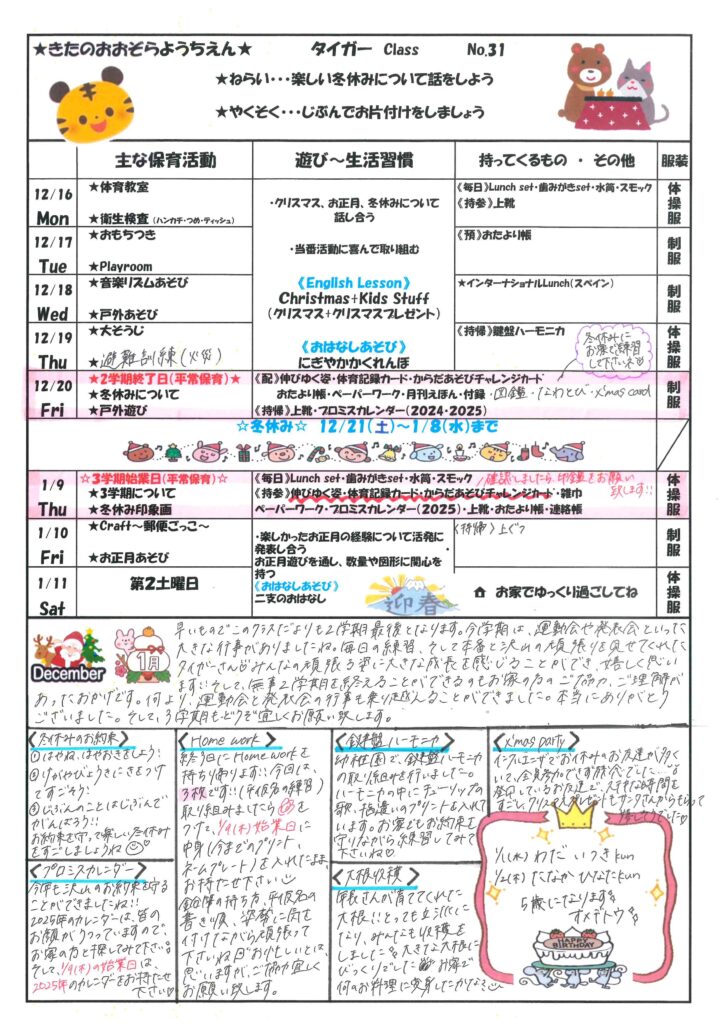 ★きたのおおぞらようちえん★ タイガー Class No.31
★ねらい・・・楽しい冬休みについて話をしよう
★やくそく・・・じぶんでお片付けをしましょう
主な保育活動 遊び～生活習慣 持ってくるもの ・ その他 服装
12/16 Mon
★体育教室
★衛生検査 (ハンカチ・つめ・ティッシュ)
・クリスマス、お正月、冬休みについて
話し合う
《毎日》Lunch set・歯みがきset・水筒・スモック
《持参》上靴
体操服
12/17 Tue
★おもちつき
★Playroom
・当番活動に喜んで取り組む
《預》おたより帳
制服
12/18 Wed
★音楽リズムあそび
★戸外あそび
《English Lesson》
Christmas+Kids Stuff
(クリスマス+クリスマスプレゼント)
★インターナショナルLunch(スペイン)
制服
12/19 Thu
★大そうじ
★避難訓練(火災)
《おはなしあそび》
にぎやかかくれんぼ
《持帰》鍵盤ハーモニカ
冬休みに
お家で練習
して下さいネ♡
体操服
12/20 Fri
★2学期終了日(平常保育)★
★冬休みについて
★戸外遊び
《配》伸びゆく姿・体育記録カード・からだあそびチャレンジカード
おたより帳・ペーパーワーク・月刊えほん・付録・図鑑・なわとび・X'mas card
《持帰》上靴・プロミスカレンダー(2024・2025)
制服
☆冬休み☆ 12/21(土)～1/8(水)まで
1/9 Thu
☆3学期始業日(平常保育)☆
★3学期について
★冬休み印象画
《毎日》Lunch set・歯みがきset・水筒・スモック
《持参》伸びゆく姿・体育記録カード・からだあそびチャレンジカード・雑巾
ペーパーワーク・プロミスカレンダー(2025)・上靴・おたより帳・連絡帳
確認しましたら、印鑑をお願い
致します!!
体操服
1/10 Fri
★Craft～郵便ごっこ～
★お正月あそび
・楽しかったお正月の経験について活発に
発表し合う
お正月遊びを通し、数量や図形に関心を
持つ
《持帰》上ぐつ
制服
1/11 Sat
第2土曜日
《おはなしあそび》
二支のおはなし
迎春
お家でゆっくり過ごしてね
体操服
December
1月
早いものでこのクラスだよりも2学期最後となります。今学期は、運動会や発表会といった
大きな行事がありましたね。毎日の練習、そして本番と沢山の頑張りを見せてくれた
タイガーさん!!みんなの頑張る姿に大きな成長を感じることができ、嬉しく思い
ます!!そして、無事2学期を終えることができるのもお家の方のご協力、ご理解が
あったおかげです。何より、運動会と発表会の行事も乗り越えることができました。本当にありがとう
ございました。そして、3学期もどうぞ宜しくお願い致します。
<冬休みのお約束>
①はやね、はやおきをしよう!
②けがやびょうきにきをつけて
すごそう!
③じぶんのことはじぶんで
がんばろう!!
お約束を守って楽しい冬休み
をすごしましょうね♡
<プロミスカレンダー>
今年も沢山のお約束を守る
ことができましたね!!
2025年のカレンダーは、皆の
お顔がうつっていますので、
お家の方と探してみて下さい。
そして、1/9(木)の始業日は、
2025年のカレンダーをお持たせ
下さい♡
<Home work>
終了日にHome workを
持ち帰ります!!今回は、
3枚です!!(平仮名の練習)
取り組みましたら
をつけて、1/9(木)始業日に
中身(今までのプリント、
ネームプレート)を入れたまま、
お持たせ下さい
鉛筆の持ち方、平仮名の
書き順、姿勢に気を
付けながら頑張って
下さいね お忙しいとは、
思いますが、ご協力宜しく
お願い致します。
<鍵盤ハーモニカ>
幼稚園で、鍵盤ハーモニカ
の取り組みを行いました。
ハーモニカの中にチューリップの
歌、指遣いのプリントを入れて
います。お家でもお約束を
守りながら練習してみて
下さいね♡
<大根収穫>
年長さんが育ててくれた
大根!!とっても立派に
なり、みんなも収穫を
しました 大きな大根に
びっくりでした お家で
何のお料理に変身したかなぁ
<X'mas party>
インフルエンザでお休みのお友達が多く
いて、全員参加できず残念でした…
登園しているお友達で、ステキな時間を
すごし、クリスマスプレゼントもサンタさんからもらって
嬉しそうでした♡
1/1(水) わだ いつきkun
1/2(木) たなか ひなたkun
5歳になります
オメデトウ
HAPPY BIRTHDAY